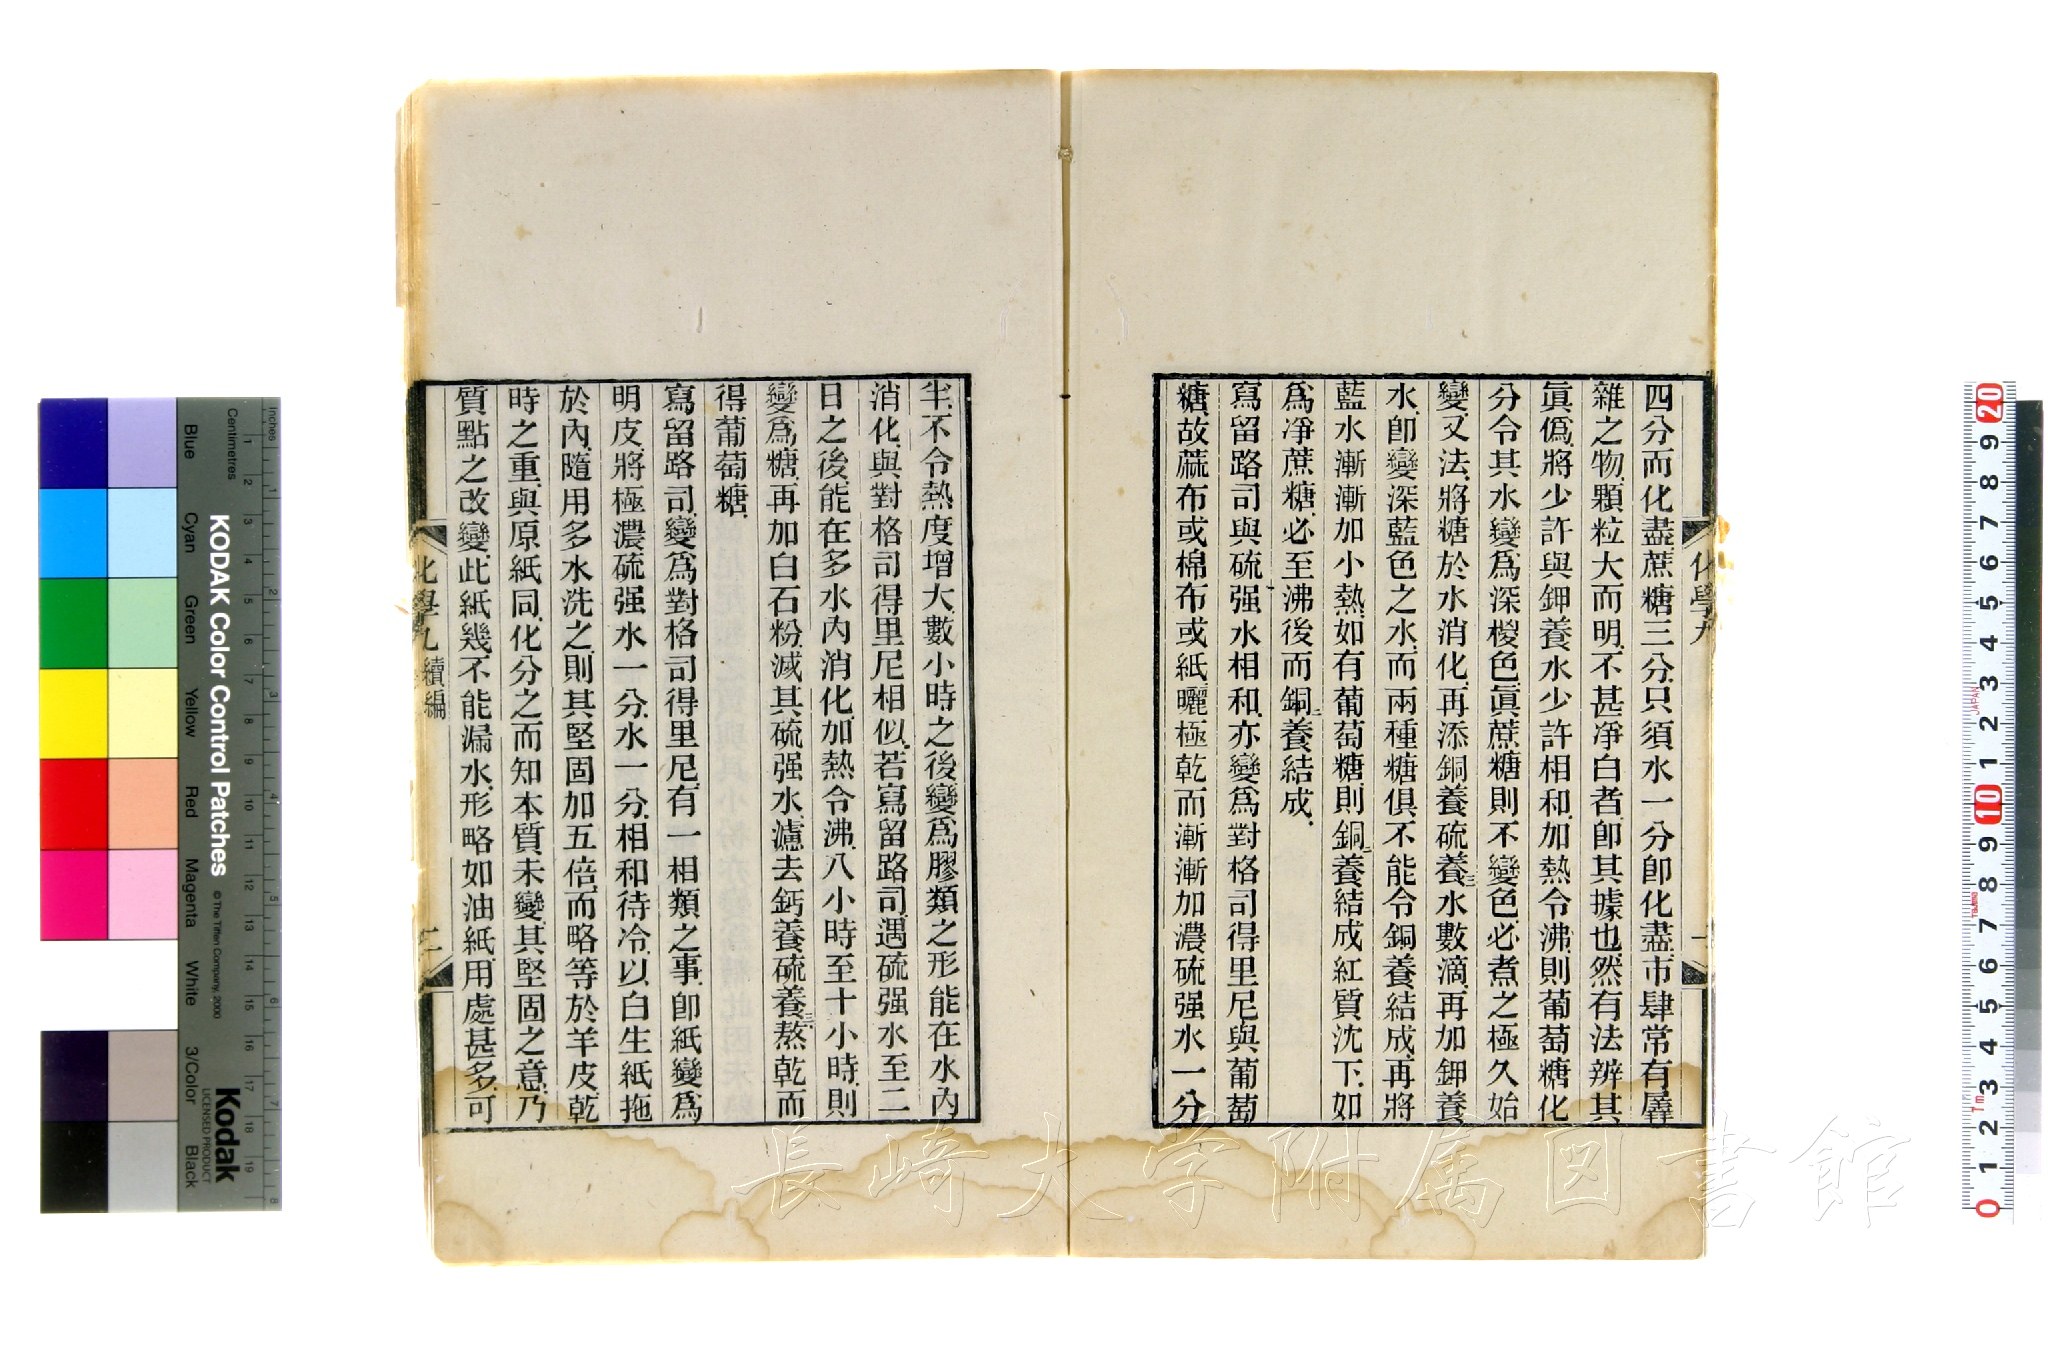 四分而化盡、蔗糖三分、只須水一分卽化盡、市肆常有羼
雜之物、顆粒大而明、不甚凈白者、卽其據也、然有法辨其
眞僞、將少許與鉀養水少許相和、加熱令沸、則葡萄糖化
分、令其水變爲深椶色、眞蔗糖則不變色、必煮之極久始
變、又法、將糖於水消化、再添銅養硫養三水數滴、再加鉀養
水、卽變深藍色之水、而兩種糖俱不能令銅養結成、再將
藍水漸漸加小熱、如有葡萄糖、則銅二養結成紅質沈下、如
爲凈蔗糖、必至沸後而銅二養結成、
寫留路司與硫强水相和、亦變爲對格司得里尼與葡萄
糖、故蔴布或棉布或紙、曬極乾而漸漸加濃硫强水一分
半、不令熱度增大、數小時之後變爲膠類之形、能在水內
消化、與對格司得里尼相似、若寫留路司、遇硫强水至二
日之後、能在多水內消化、加熱令沸、八小時至十小時、則
變爲糖、再加白石粉、滅其硫强水、濾去鈣養硫養三、熬乾而
得葡萄糖、
寫留路司、變爲對格司得里尼、有一相類之事、卽紙變爲
明皮、將極濃硫强水一分、水一分、相和待冷、以白生紙拖
於內、隨用多水洗之、則其堅固加五倍、而略等於羊皮、乾
時之重、與原紙同、化分之而知本質未變、其堅固之意、乃
質點之改變、此紙幾不能漏水、形略如油紙、用處甚多、可
化學九續編
二
化學九
KODAK Color Control Patches
© The Tiffen Company, 2000
Kodak
LICENSED PRODUCT
Inches
Centimetres
Blue
Cyan
Green
Yellow
Red
Magenta
White
3/Color
Black
長崎大学附属図書館